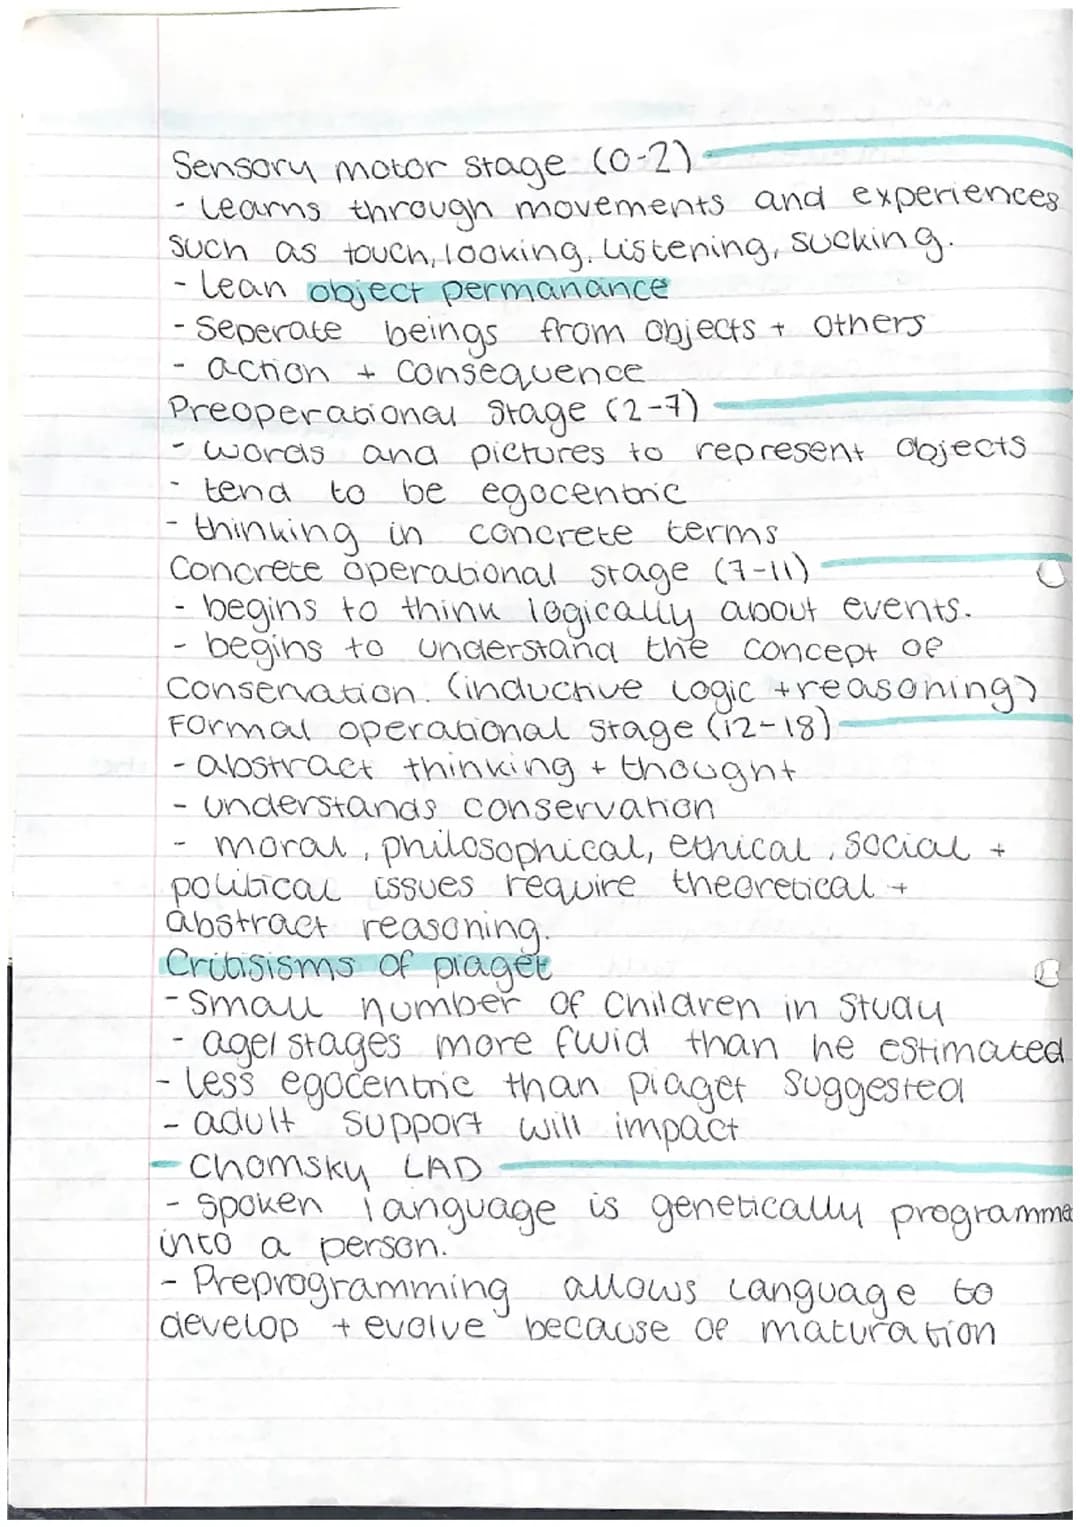 Sensory motor stage (0-2)
- learns through movements and experiences
such as touch, looking, listening, sucking.
- lean object permanance
- Seperate beings from objects + others
- action + consequence
Preoperational stage (2-7)
- words and pictures to represent objects
- tend to be egocentric
- thinking in concrete terms
Concrete operational stage (7-11)
- begins to think logically about events.
- begins to understand the concept of
conservation. (inductive logic + reasoning)
Formal operational stage (12-18)
- abstract thinking + thought
- understands conservation
- moral, philosophical, ethical, social +
political issues require theoretical +
abstract reasoning.
Critisisms of piaget
- small number of children in study
- age/stages more fluid than he estimated
- less egocentric than piaget suggested
- adult support will impact
- Chomsky LAD
- spoken language is genetically programme
into a person.
- Preprogramming allows language to
develop + evolve because of maturation